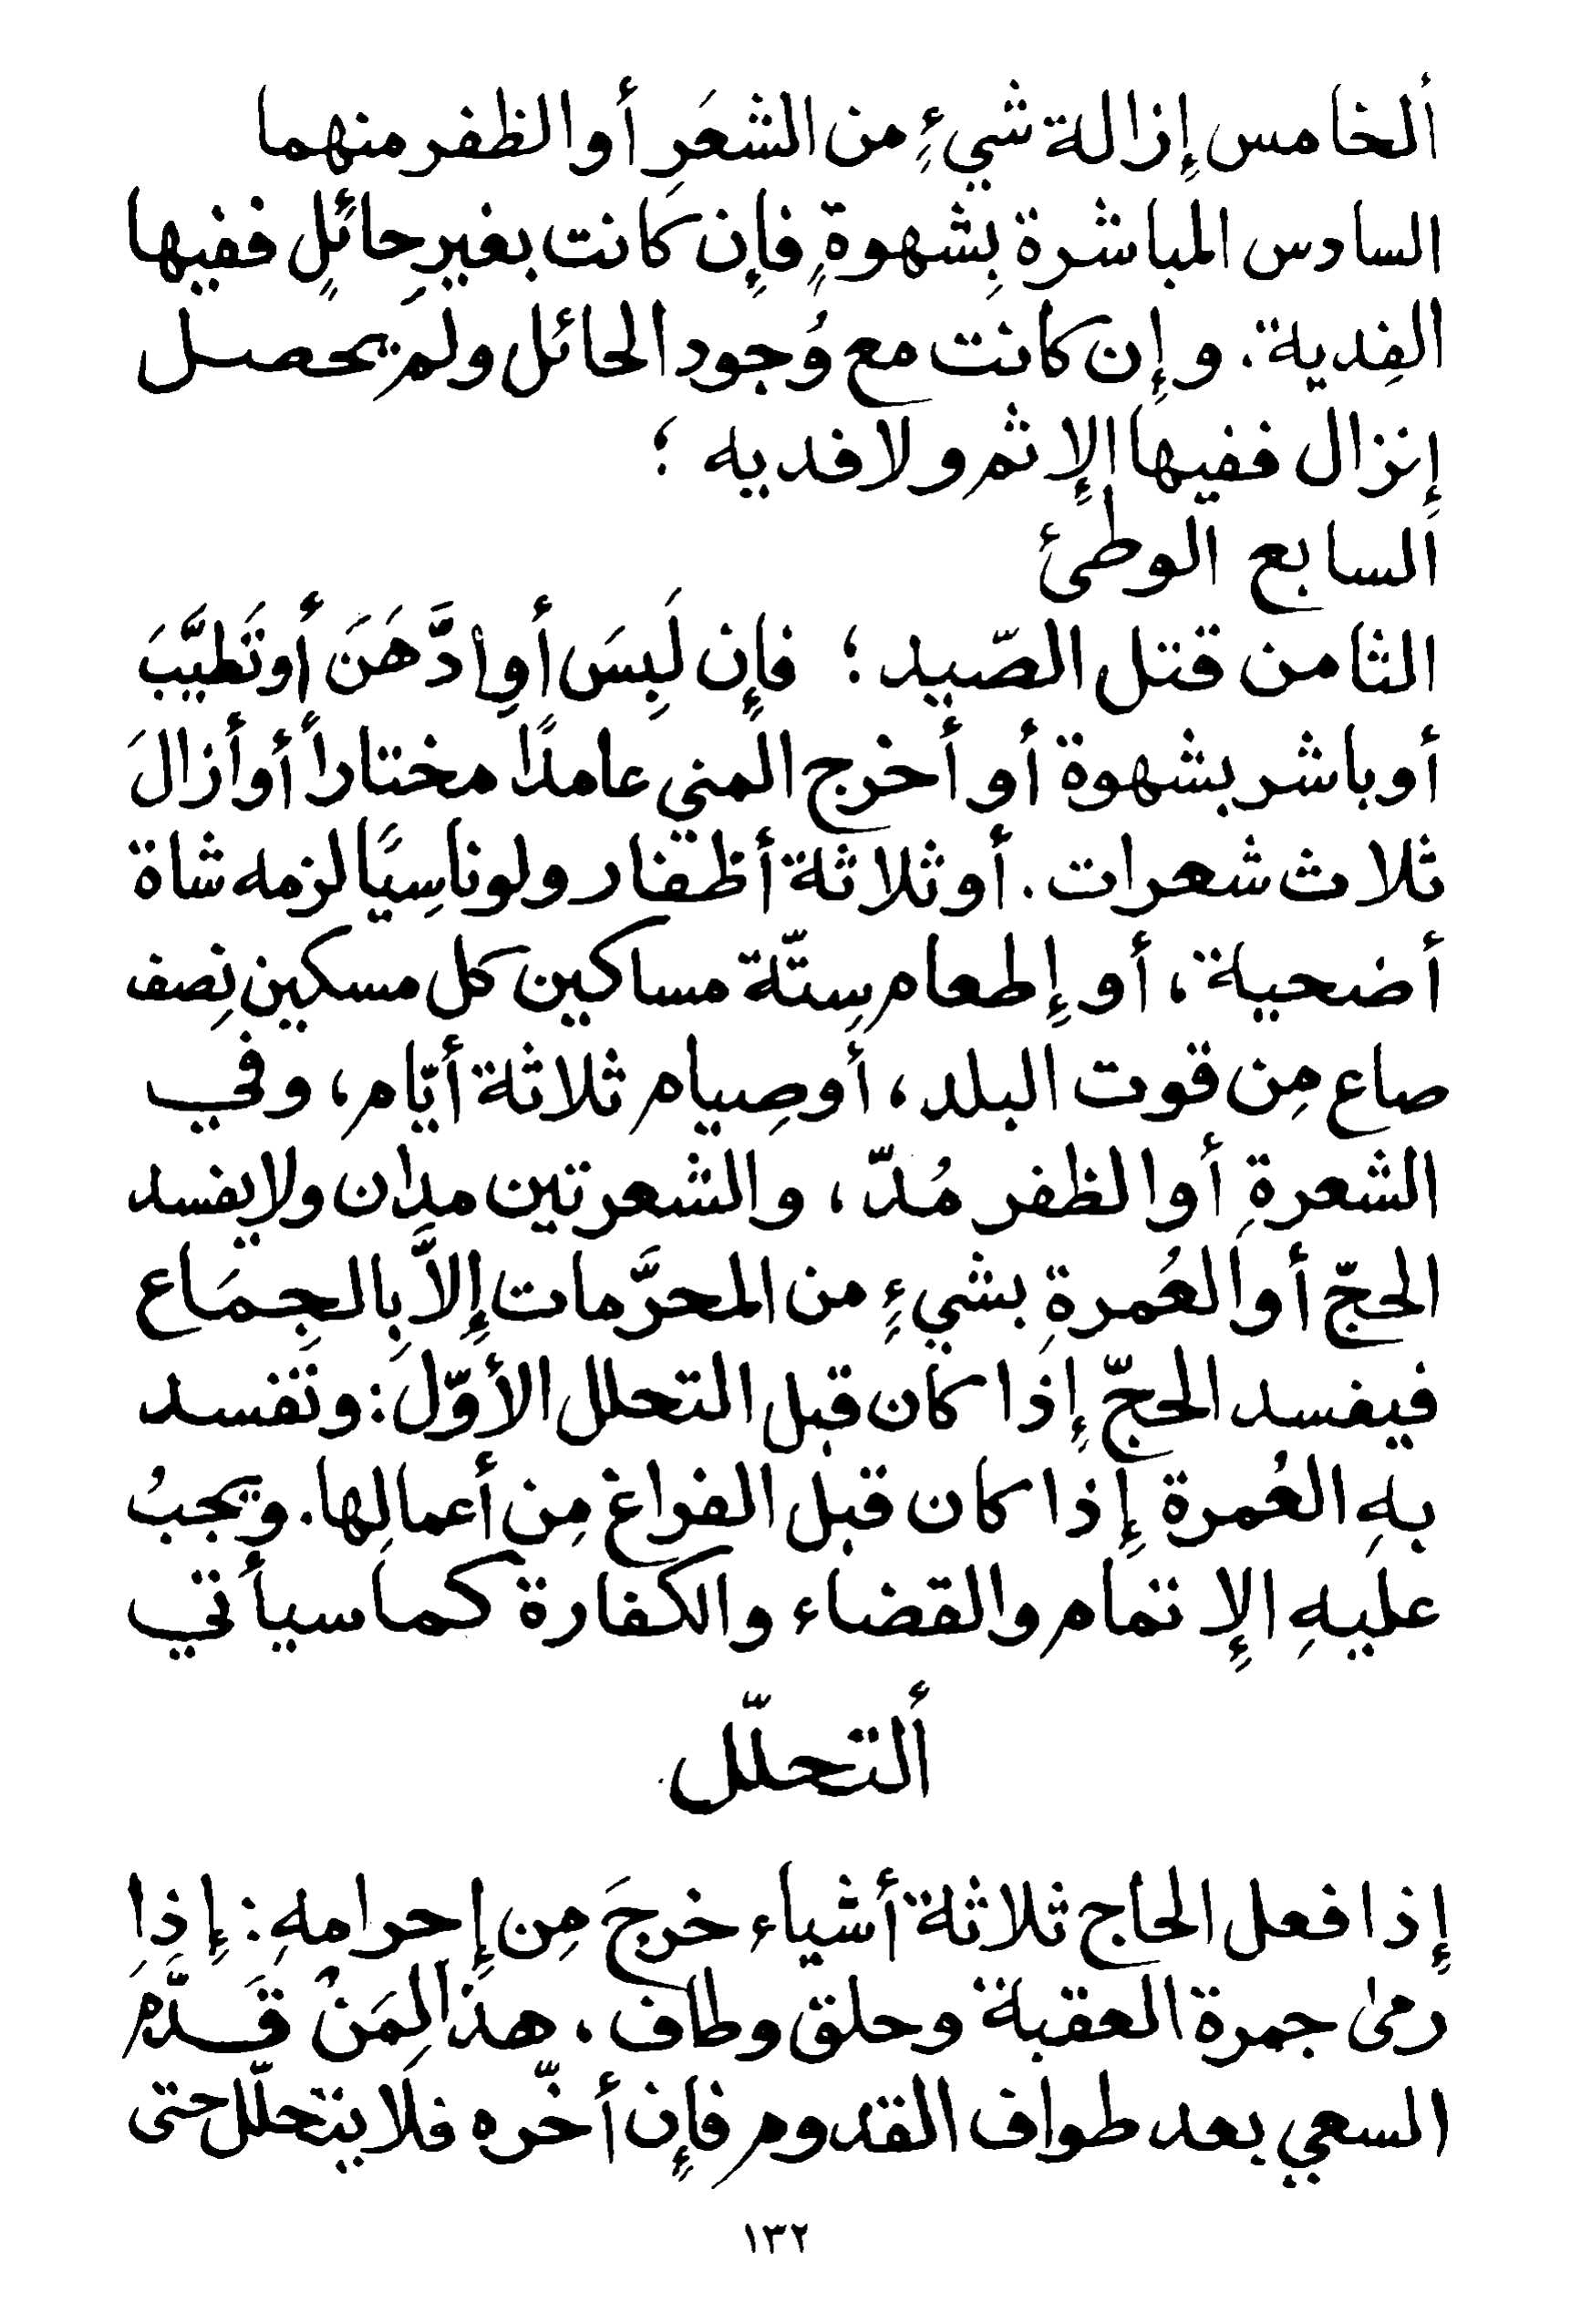 ألخامس إِزالة شيءٍ من الشعَرِ أو الظفر منهما
السادس المباشرة بِشهوةٍ فإِن كانت بغيرِ حائلٍ ففيها
الفِدية. وإِن كانت مع وُجود الحائل ولم يحصل
إِنزال ففيها الإِثم ولا فديه ؛
ألسابع الوطئ
الثامن قتل الصّيد ؛ فإِن لَبِسَ أوِ ادَّهَنَ أو تَطيَّبَ
أو باشر بشهوة أو أخرج المني عامدًا مختاراً أو أزالَ
ثلاث شعرات. أو ثلاثة أظفار ولو ناسِيًا لزمه شاة
أضحية، أو إِطعام سِتّة مساكين كل مسكين نِصف
صاع مِن قوت البلد، أو صِيام ثلاثة أيّام، وفي
الشعرةِ أو الظفر مُدّ، والشعرتين مدان ولا يفسد
الحجّ أو العُمرةِ بشيءٍ من المحرَّمات إِلاَّ بِالجِمَاع
فيفسد الحجّ إِذا كان قبل التحلل الأوّل: وتفسد
بهِ العُمرة إِذا كان قبل الفراغ مِن أعمالِها. ويجبُ
عليهِ الإِتمام والقضاء والكفارة كما سيأتي
ألتحلّل
إِذا فعل الحاج ثلاثة أشياء خرجَ مِن إِحرامهِ: إِذا
رمى جمرة العقبة وحلق وطاف. هذا لِمَنْ قَدَّمَ
السعي بعد طواف القدوم فإِن أخّره فلا يتحلّل حتى
١٣٢